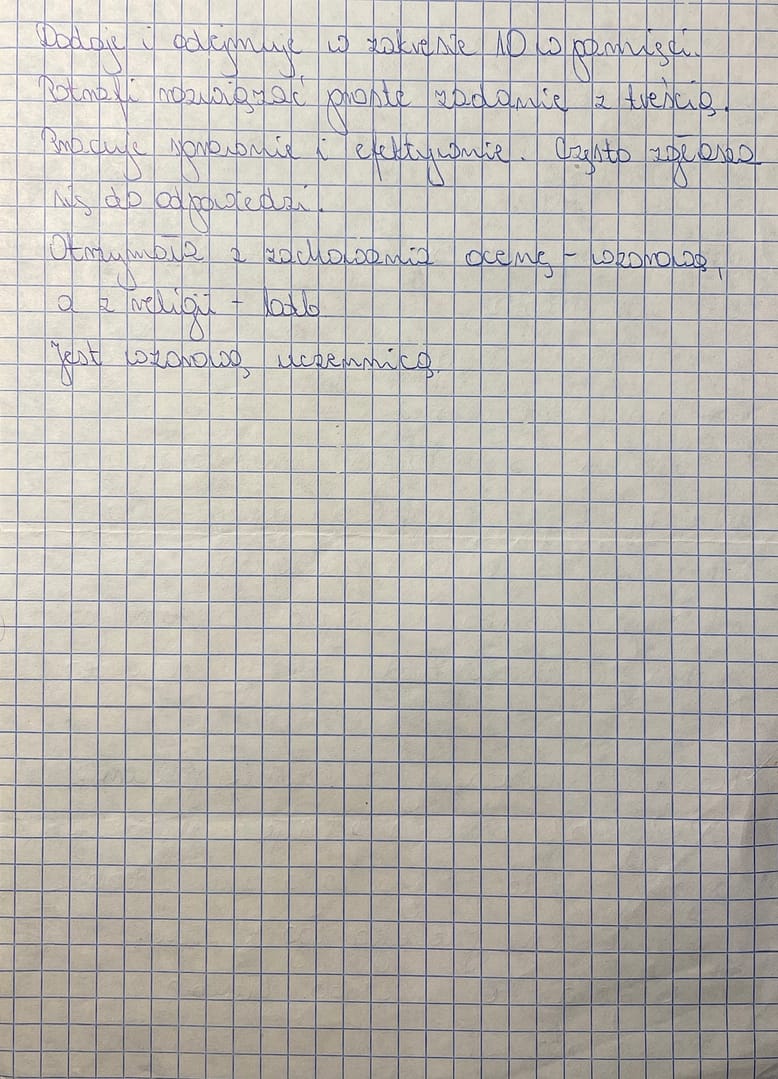 Dodaje i odejmuje w zakresie 10 w pamięci.
Potrafi rozwiązać proste zadanie z treścią.
Pracuje sprawnie i efektywnie. Często zgłasza
się do odpowiedzi.
Otrzymała z zachowania ocenę - wzorową,
a z religii -
Jest wzorową uczennicą.